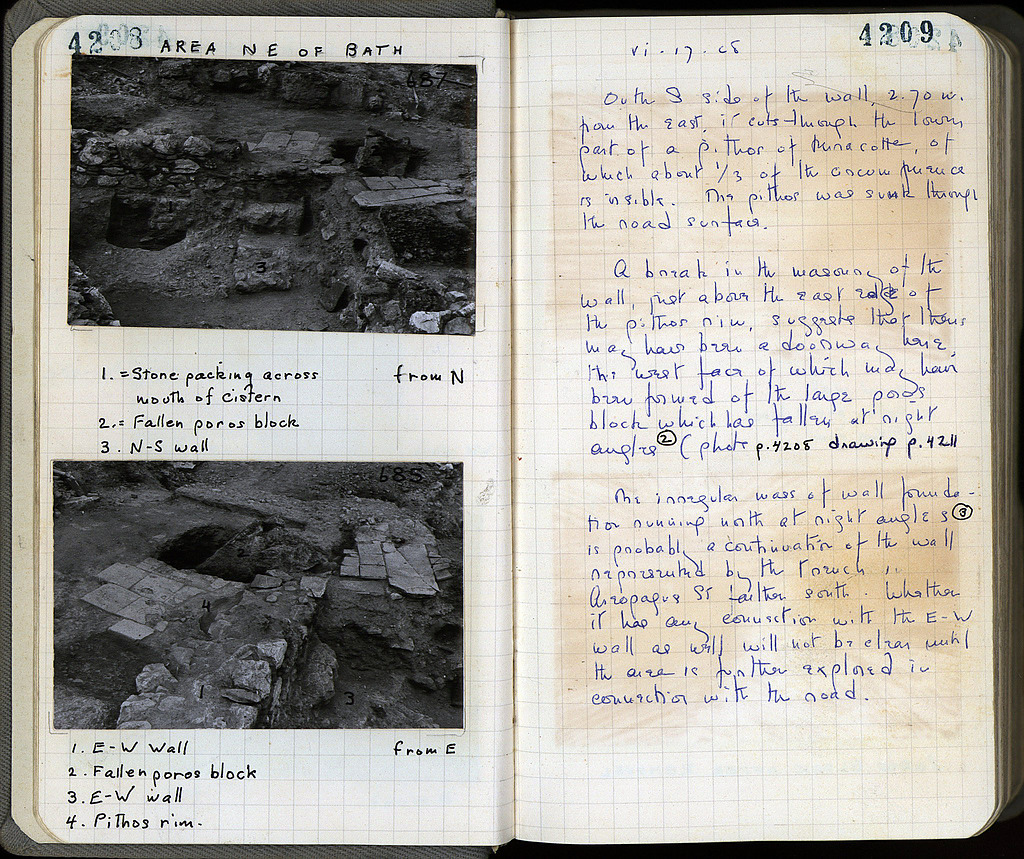 4208 AREA NE OF BATH
687
1. = Stone packing across from N
mouth of cistern
2. = Fallen poros block
3. N-S wall
3
685
2
4
1
3
1. E-W Wall from E
2. Fallen poros block
3. E-W wall
4. Pithos rim.
4209
vi-17-68
On the S side of the wall, 2.70 m.
from the east, it cuts through the lower
part of a pithos of terracotta, of
which about 1/3 of the circumference
is visible. The pithos was sunk through
the road surface.
A break in the masonry of the
wall, just above the east edge of
the pithos rim, suggests that there
may have been a doorway here,
the west face of which may have
been formed of the large poros
block which has fallen at right
angles ② (photo p.4208 drawing p.4211
The irregular mass of wall founda-
tion running north at right angles ③
is probably a continuation of the wall
represented by the trench in
Areopagus St farther south. Whether
it has any connection with the E-W
wall as well will not be clear until
the area is further explored in
connection with the road.